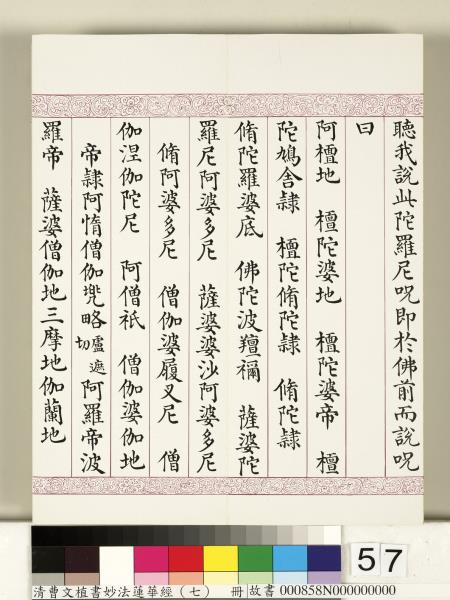 聽我說此陀羅尼呪即於佛前而說呪
曰
阿檀地　檀陀婆地　檀陀婆帝　檀
陀鳩舍隷　檀陀脩陀隷　脩陀隷
脩陀羅婆底　佛陀波羶禰　薩婆陀
羅尼阿婆多尼　薩婆婆沙阿婆多尼
脩阿婆多尼　僧伽婆履叉尼　僧
伽涅伽陀尼　阿僧祇　僧伽婆伽地
帝隷阿惰僧伽兠略盧遮切阿羅帝波
羅帝　薩婆僧伽地三摩地伽蘭地
57
清曹文植書妙法蓮華經（七）　冊　故書 000858N000000000